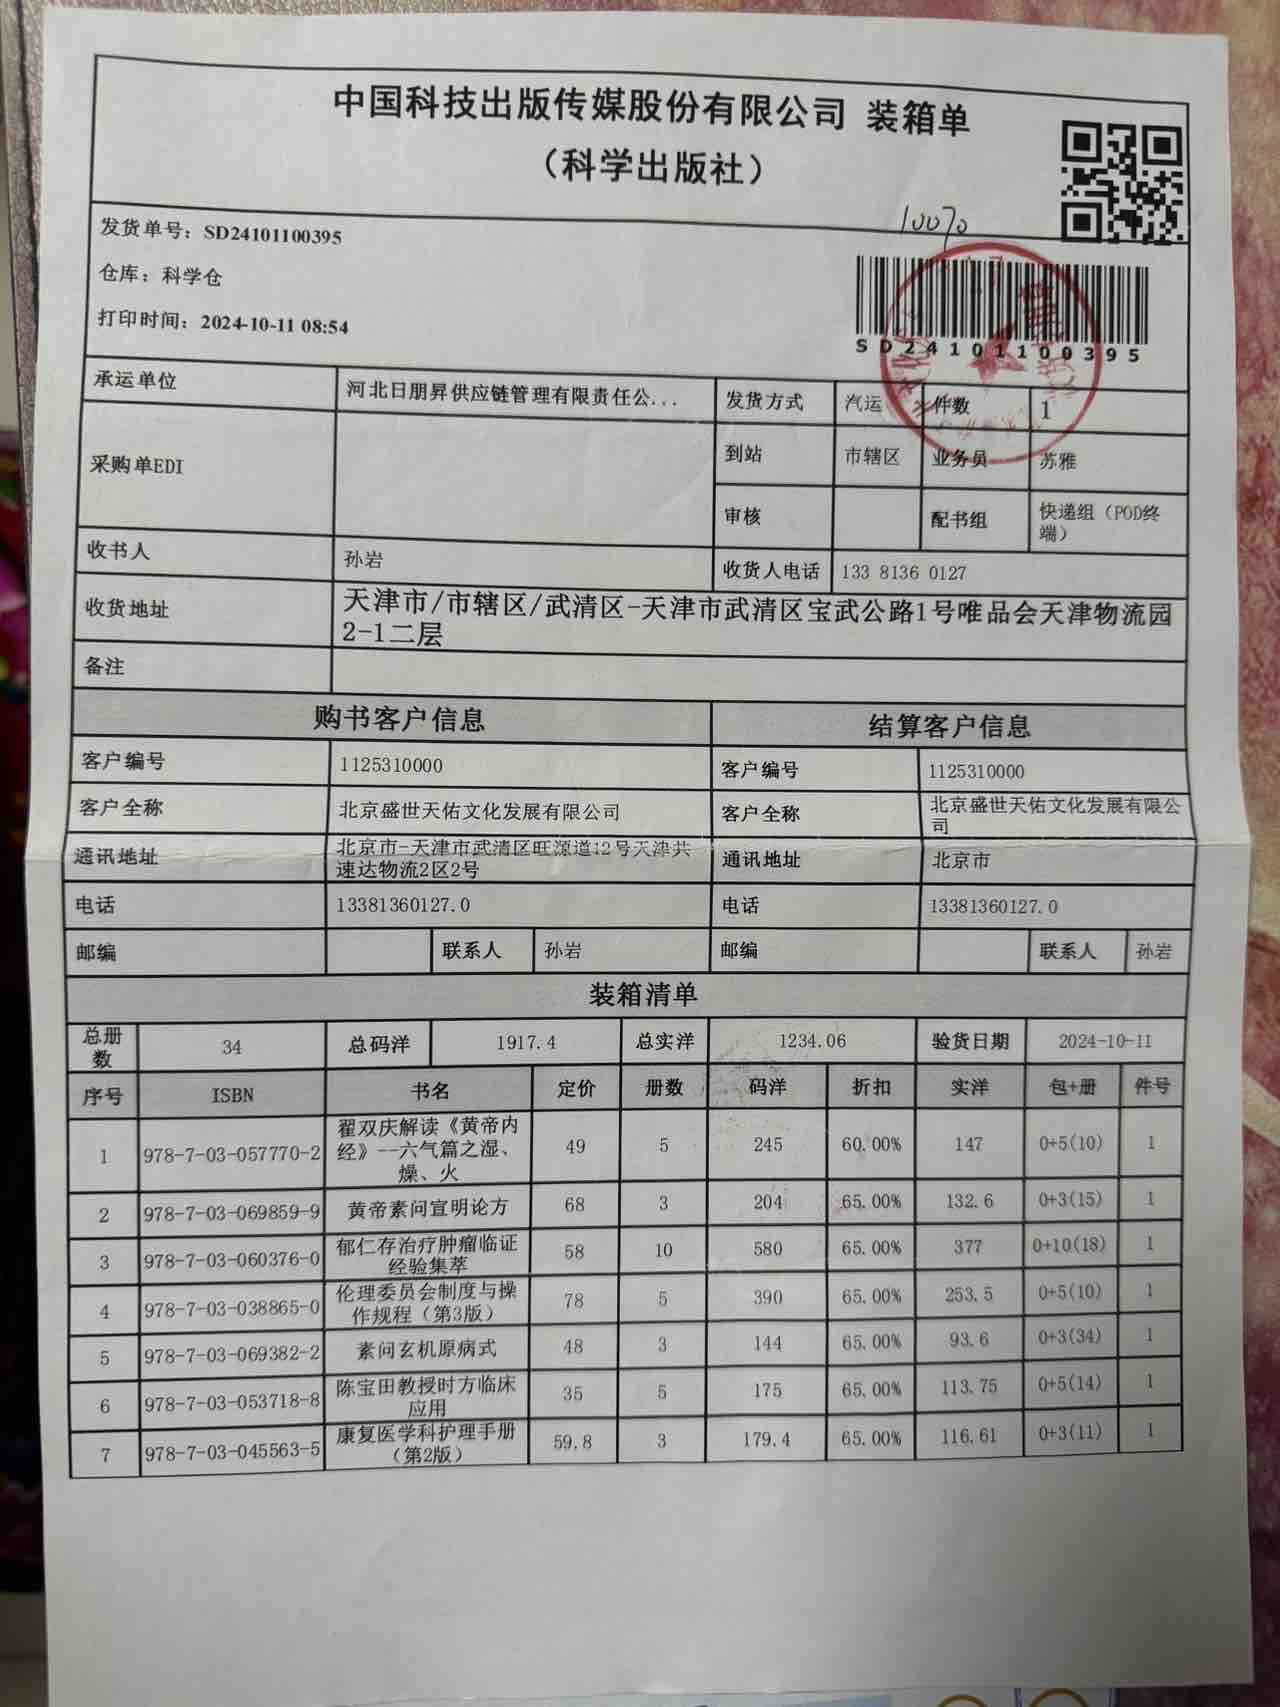 中国科技出版传媒股份有限公司 装箱单
（科学出版社）
10070
发货单号：SD24101100395
仓库：科学仓
打印时间：2024-10-11 08:54
SD24101100395
承运单位 河北日朋昇供应链管理有限责任公... 发货方式 汽运 件数 1
采购单EDI 到站 市辖区 业务员 苏雅
审核 配书组 快递组（POD终
端）
收书人 孙岩 收货人电话 133 8136 0127
收货地址 天津市/市辖区/武清区-天津市武清区宝武公路1号唯品会天津物流园
2-1二层
备注
购书客户信息 结算客户信息
客户编号 1125310000 客户编号 1125310000
客户全称 北京盛世天佑文化发展有限公司 客户全称 北京盛世天佑文化发展有限公
司
通讯地址 北京市-天津市武清区旺源道12号天津共
速达物流2区2号 通讯地址 北京市
电话 13381360127.0 电话 13381360127.0
邮编 联系人 孙岩 邮编 联系人 孙岩
装箱清单
总册
数 34 总码洋 1917.4 总实洋 1234.06 验货日期 2024-10-11
序号 ISBN 书名 定价 册数 码洋 折扣 实洋 包+册 件号
1 978-7-03-057770-2 翟双庆解读《黄帝内
经》--六气篇之湿、
燥、火 49 5 245 60.00% 147 0+5(10) 1
2 978-7-03-069859-9 黄帝素问宣明论方 68 3 204 65.00% 132.6 0+3(15) 1
3 978-7-03-060376-0 郁仁存治疗肿瘤临证
经验集萃 58 10 580 65.00% 377 0+10(18) 1
4 978-7-03-038865-0 伦理委员会制度与操
作规程（第3版） 78 5 390 65.00% 253.5 0+5(10) 1
5 978-7-03-069382-2 素问玄机原病式 48 3 144 65.00% 93.6 0+3(34) 1
6 978-7-03-053718-8 陈宝田教授时方临床
应用 35 5 175 65.00% 113.75 0+5(14) 1
7 978-7-03-045563-5 康复医学科护理手册
（第2版） 59.8 3 179.4 65.00% 116.61 0+3(11) 1